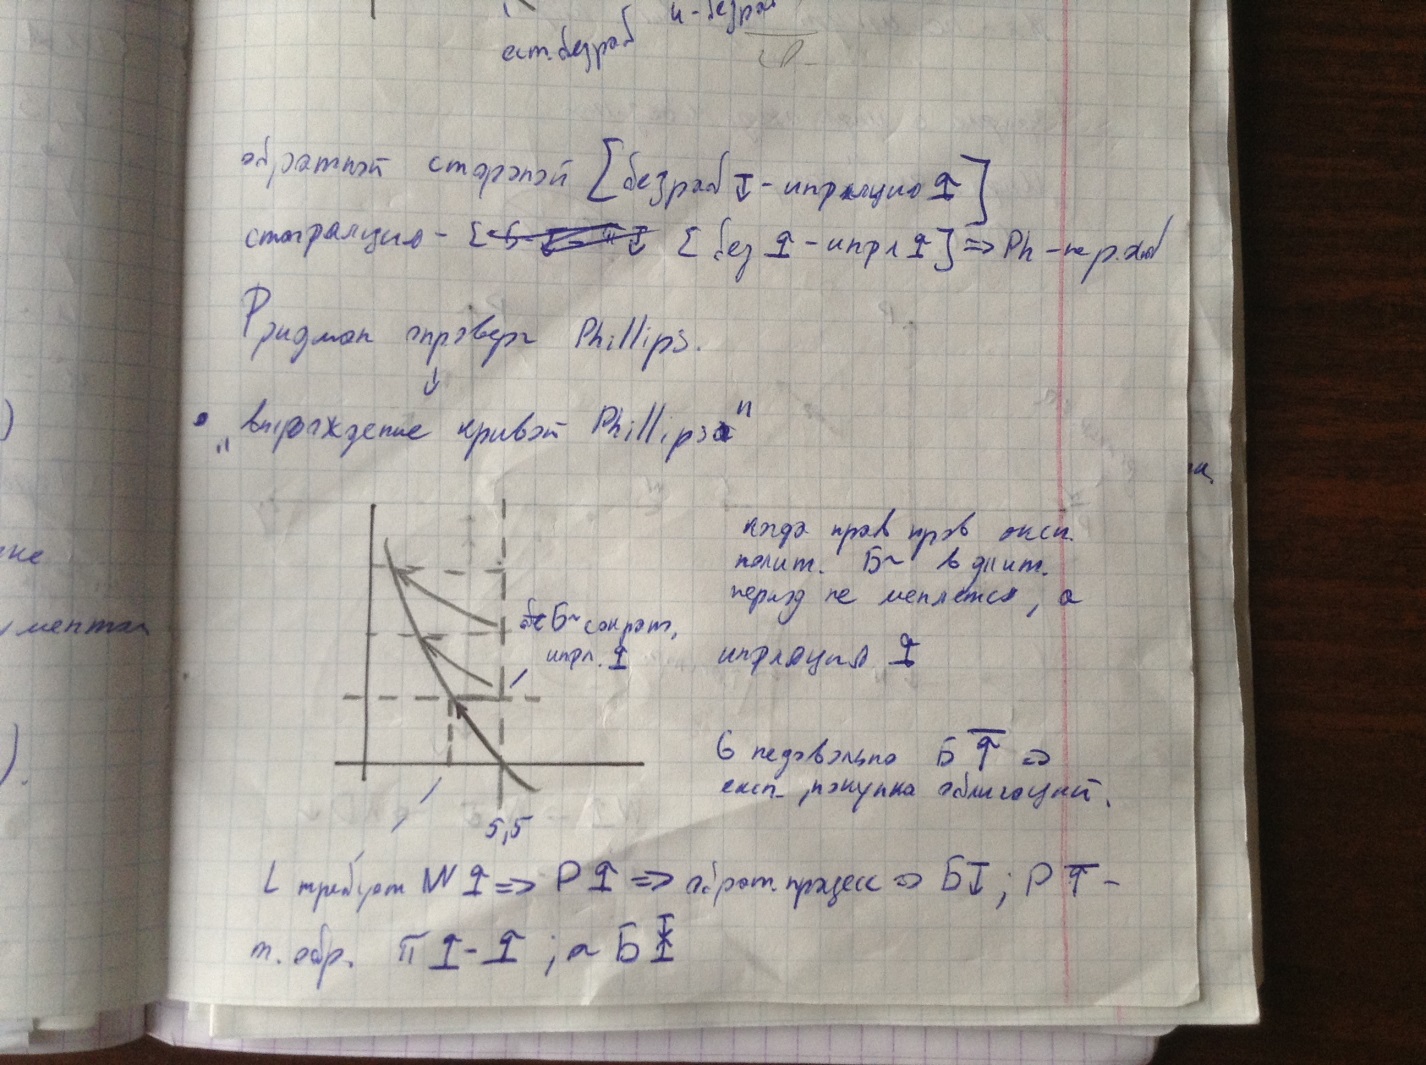 ест. безраб
u - безраб
обратной стороной [безраб ↓ - инфляция ↑]
стагфляция - [без ↑ - инфл ↑] => Ph - не р.
Фридман опроверг Phillips.
↓
• "вырождение кривой Phillipsа"
когда прав пров эксп.
полит. Б~ в длит.
период не меняется, а
инфляция ↑
Б~ сократ,
инфл. ↑
G недовольно Б ↑ =>
эксп , покупка облигаций.
5,5
L требуют W ↑ => P ↑ => обрат. процесс => Б ↓ ; P ↑ -
т. обр. π ↑ - ↑ ; а Б